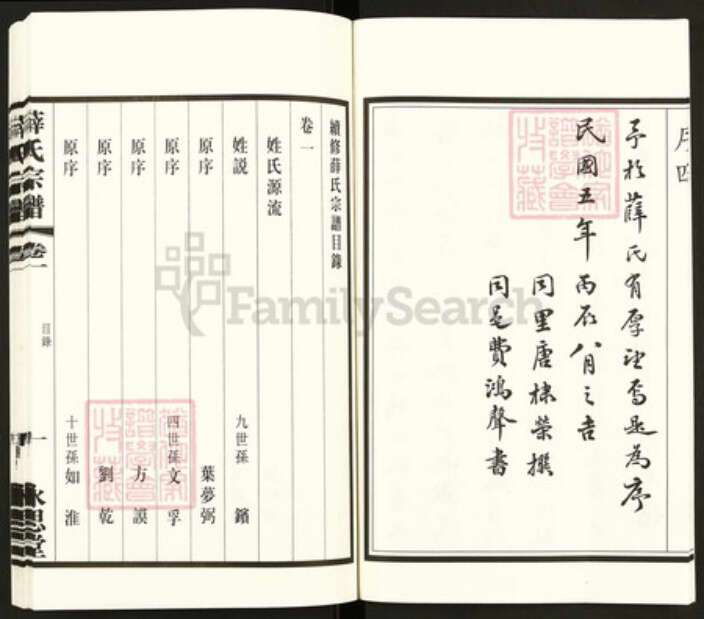 序四
予於薛氏有厚望焉是為序
民國五年丙辰八月之吉
同里唐棣榮撰
同邑費鴻聲書
續修薛氏宗譜目錄
卷一
姓氏源流
姓說 九世孫 鑌
原序 葉夢弼
原序 四世孫文孚
原序 方謨
原序 劉乾
原序 十世孫如淮
薛氏宗譜 卷一 目錄 一 永思堂
FamilySearch